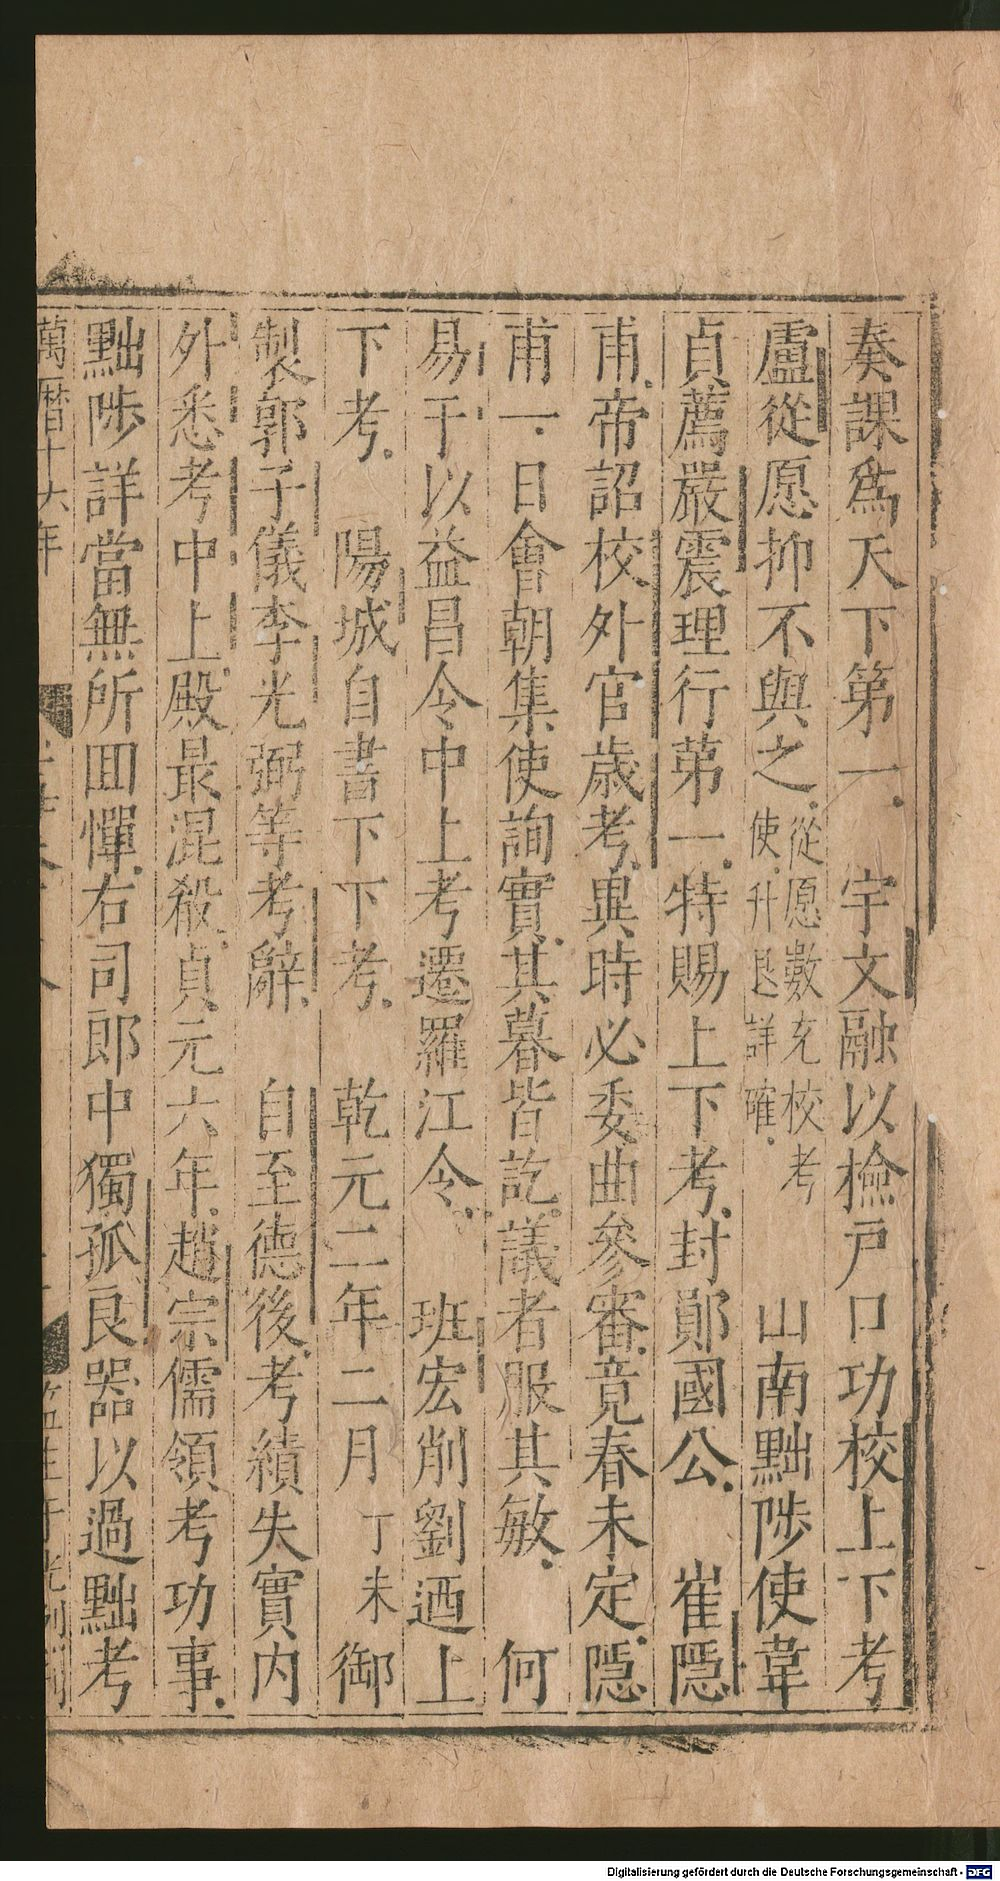 奏課爲天下第一　宇文融以檢戸口功校上下考
盧從愿抑不與之從愿數充校考使升退詳確　山南黜陟使韋
貞薦嚴震理行苐一特賜上下考封鄖國公　崔隱
甫帝詔校外官歲考異時必委曲參審竟春未定隱
甫一日會朝集使詢實其暮皆訖議者服其敏　何
易于以益昌令中上考遷羅江令　班宏削劉迺上
下考　陽城自書下下考　乾元二年二月丁未御
製郭子儀李光弼等考辭　自至德後考績失實内
外悉考中上殿最混殽貞元六年趙宗儒領考功事
黜陟詳當無所回憚右司郎中獨孤良器以過黜考
萬曆十六年
Digitalisierung gefördert durch die Deutsche Forschungsgemeinschaft - DFG